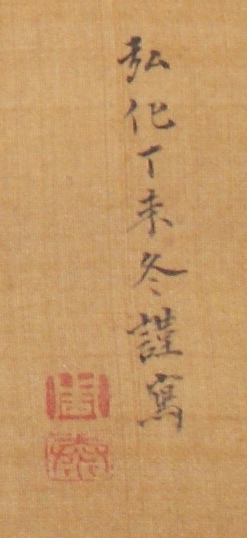 弘化丁未冬謹寫